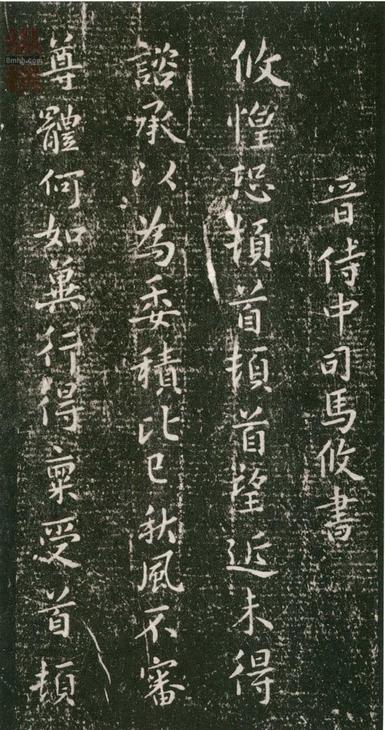 晉侍中司馬攸書
攸惶恐頓首頓首望近未得
諮承以為委積比已秋風不審
尊體何如冀行得稟受首頓
8mhh.com